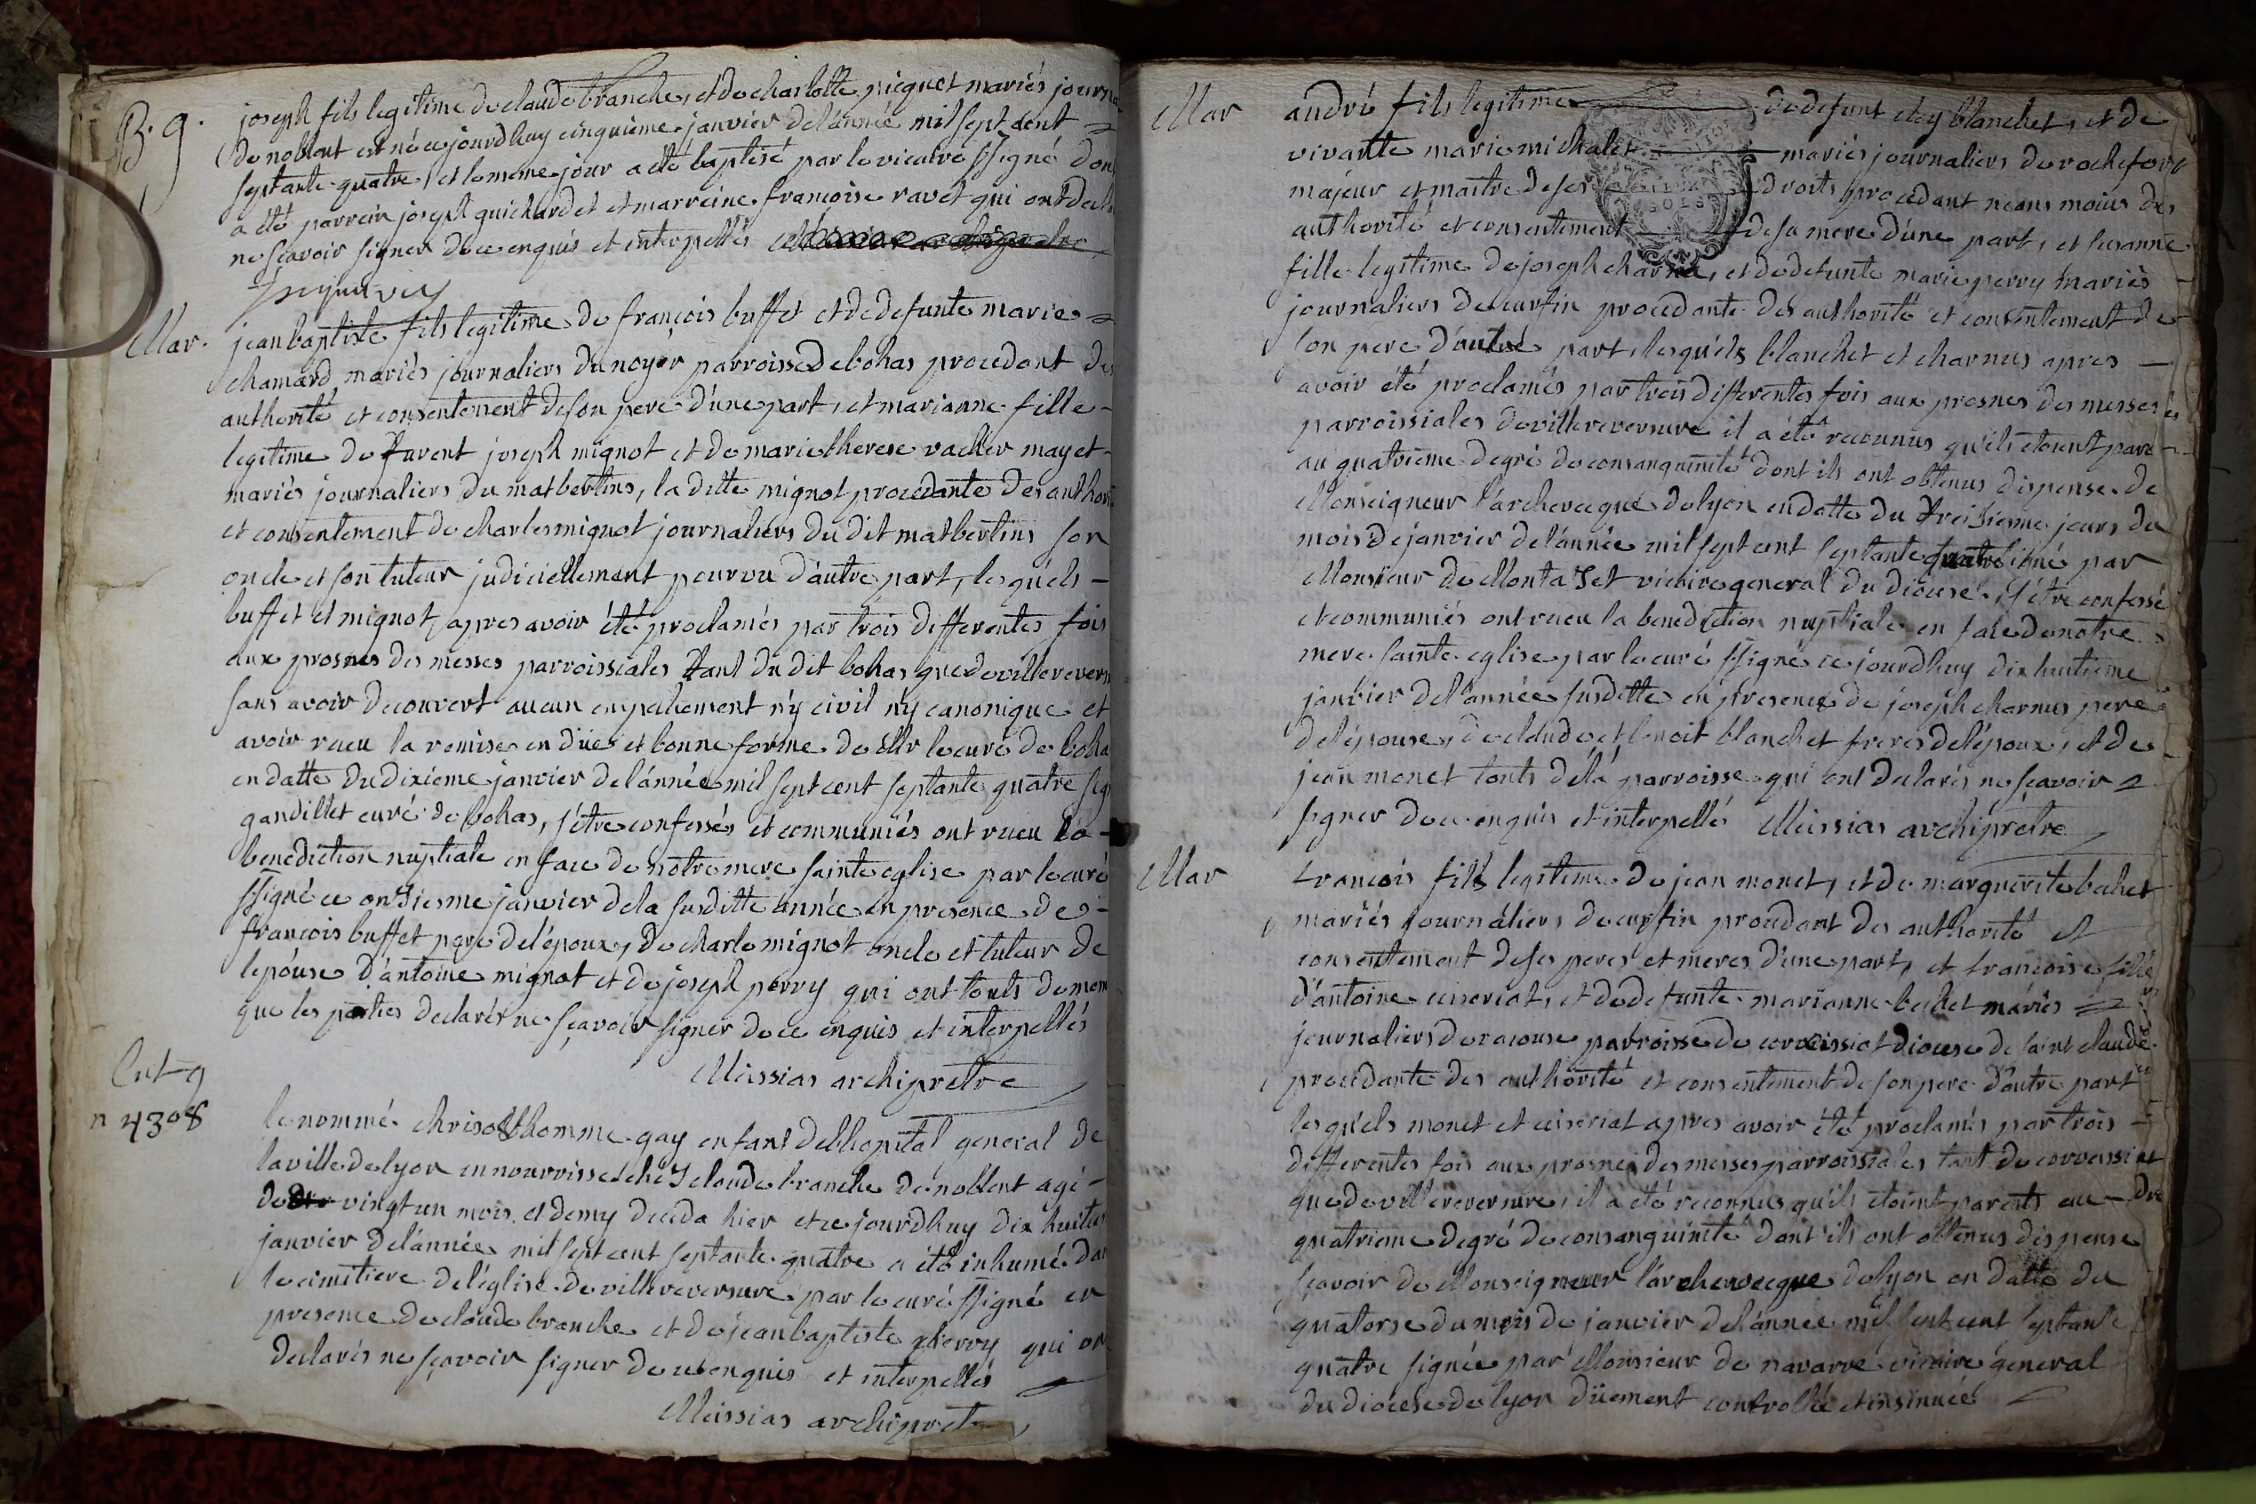 B. g.
joseph fils legitime de claude branche, et de charlotte picquet mariés journa
de noblent est né ce jourdhuy cinquieme janvier de l'année mil sept cent
septante quatre, et le meme jour a été baptisé par le vicaire ssigné dont
a été parrein joseph quichardet et marreine francoise ravet qui ont decla
ne sçavoir signer de ce enquis et interpellés
Mar.
jean baptiste fils legitime de françois buffet et de defunte marie
chamard mariés journaliers du noyer parroisse de bohas procedant des
authorité et consentement de son pere d'une part, et marianne fille
legitime de furent joseph mignot et de marie therese vacher mayet
mariés journaliers du mas bertins, la ditte mignot procedante des authori
et consentement de charles mignot journaliers du dit mas bertins son
oncle et son tuteur judiciellement pourvu d'autre part, les qu'els
buffet et mignot, apres avoir été proclamés par trois differentes fois
aux prosnes des messes parroissiales tant du dit bohas que de villerevers
sans avoir decouvert aucun enpechement n'y civil n'y canonique et
avoir reçu la remise en düe et bonne forme de Mr le curé de boha
en datte du dixieme janvier de l'année mil sept cent septante quatre sig
gandillet curé de bohas, s'être confessés et communiés ont reçu la
benediction nuptiale en face de nôtre mere sainte eglise par le curé
ssigné ce onsiesme janvier de la susditte année en presence de
françois buffet pere de l'époux, de charle mignot oncle et tuteur de
l'epouse d'antoine mignot et de joseph perry qui ont touts de mem
que les parties declarés ne sçavoir signer de ce enquis et interpellés
Messias archipretre
Ent g
n 4308
le nommé chrisosthomme gay enfant de l'hopital general de
la ville de lyon en nourrisse ché claude branche de noblent agé
de vingt un mois et demy deceda hier et ce jourdhuy dix huitie
janvier de l'année mil sept cent septante quatre a été inhumé dan
le cimetiere de l'église de villereversure par le curé ssigné en
presence de claude branche et de jean baptiste cherry qui on
declarés ne sçavoir signer de ce enquis et interpellés
Messias archipret
Mar
andré fils legitime de defunt eloy blanchet, et de
vivante marie michalet mariés journaliers de rochefort
majeur et maitre de ses droits procedant neans moins des
authorité et consentement de sa mere d'une part, et susanne
fille legitime de joseph charnu, et de defunte marie perry mariés
journaliers de curfin procedante des authorité et consentement de
son pere d'autre part, les qu'els blanchet et charnus apres
avoir été proclamés par trois differentes fois aux prosnes des messes
parroissiales de villereversure il a été reconnus qu'ils etoient pare
au quatrieme degré de consanguinité dont ils ont obtenus dispense de
Monseigneur l'archevecque de lyon en datte du treisiesme jours du
mois de janvier de l'année mil sept cent septante quatre signé par
Monsieur de Montaset vicaire general du diocese, s'être confessé
et communiés ont reçu la benediction nuptiale en face de notre
mere sainte eglise par le curé ssigné ce jourdhuy dix huitieme
janvier de l'année susditte en presence de joseph charnus pere
de l'épouse, de claude et benoit blanchet freres de l'époux, et de
jean monet touts de la parroisse qui ont declarés ne sçavoir
signer de ce enquis et interpellé Messias archiprêtre
Mar
francois fils legitime de jean monet, et de marguerite bechet
mariés journaliers de curfin procedant des authorité et
consentement de ses peres et meres d'une part, et francoise fille
d'antoine ceiseriat, et de defunte marianne bechet mariés
journaliers de racouse parroisse de corveissiat diocese de saint claude
procedante des authorité et consentement de son pere d'autre part
les qu'els monet et ceiseriat apres avoir été proclamés par trois
differentes fois aux prosnes des messes parroissiales tant de corveissiat
que de villereversure, il a été reconnus qu'ils etoint parents au
quatrieme degré de consanguinité dont ils ont obtenus dispense
sçavoir de Monseigneur l'archevecque de lyon en datte du
quatorse du mois de janvier de l'année mil sept cent septante
quatre signée par Monsieur de navarre vicaire general
du diocese de lyon düement controllé et insinuée